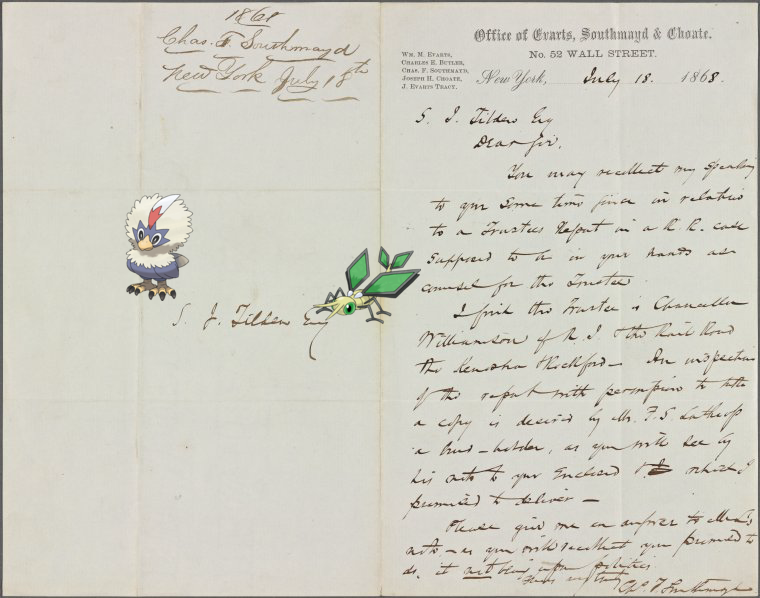 1868
Chas. F. Southmayd
New York July 18th
S. J. Tilden Esq
Office of Evarts, Southmayd & Choate.
No. 52 WALL STREET.
WM. M. EVARTS,
CHARLES E. BUTLER,
CHAS. F. SOUTHMAYD,
JOSEPH H. CHOATE,
J. EVARTS TRACY.
New York, July 18. 1868.
S. J. Tilden Esq
Dear Sir,
You may recollect my speaking
to you some time since in relation
to a Trustees Report in a R.R. case
supposed to be in your hands as
counsel for the Trustee.
I find the Trustee is Chancellor
Williamson of N.J. & the Rail Road
the Kenosha & Rockford – An inspection
of the report with permission to take
a copy is desired by Mr. F. S. Lathrop
a bond-holder, as you will see by
his note to you enclosed & which I
promised to deliver –
Please give me an answer to Mr. L's
note – as you will recollect you promised to
do, it not being upon politics.
Yours very truly
Chs. F. Southmayd